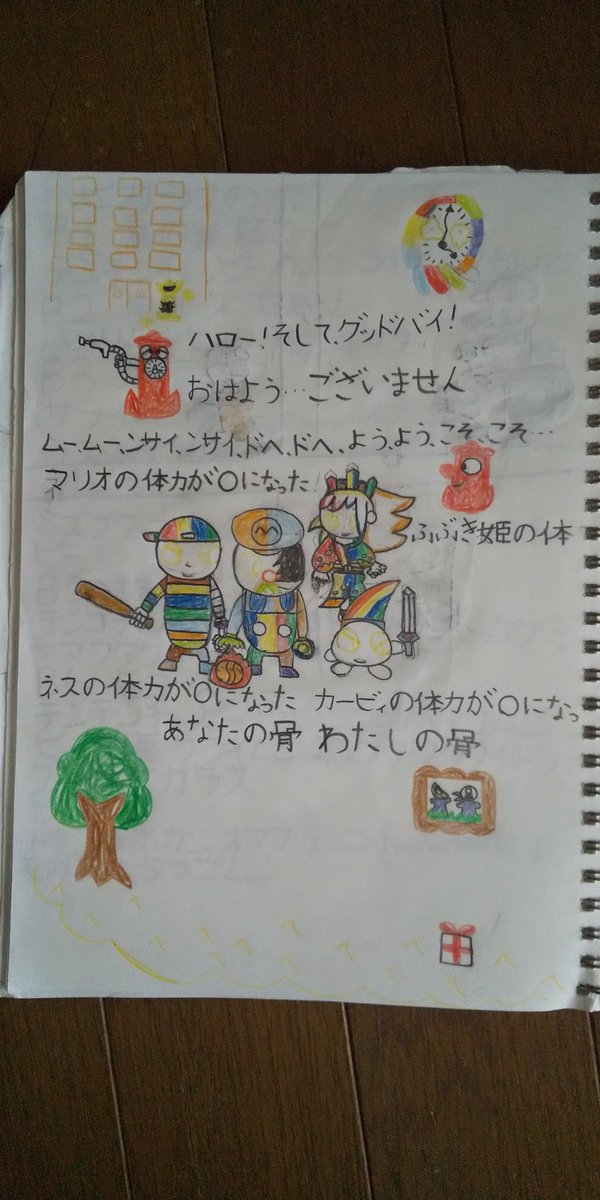 ハロー！そして、グッドバイ！
おはよう…ございません
ムー、ムー、ンサイ、ンサイ、ドヘ、ドヘ、よう、よう、こそ、こそ…
マリオの体力が〇になった
ふぶき姫の体
ネスの体力が〇になった
カービィの体力が〇になっ
あなたの骨
わたしの骨